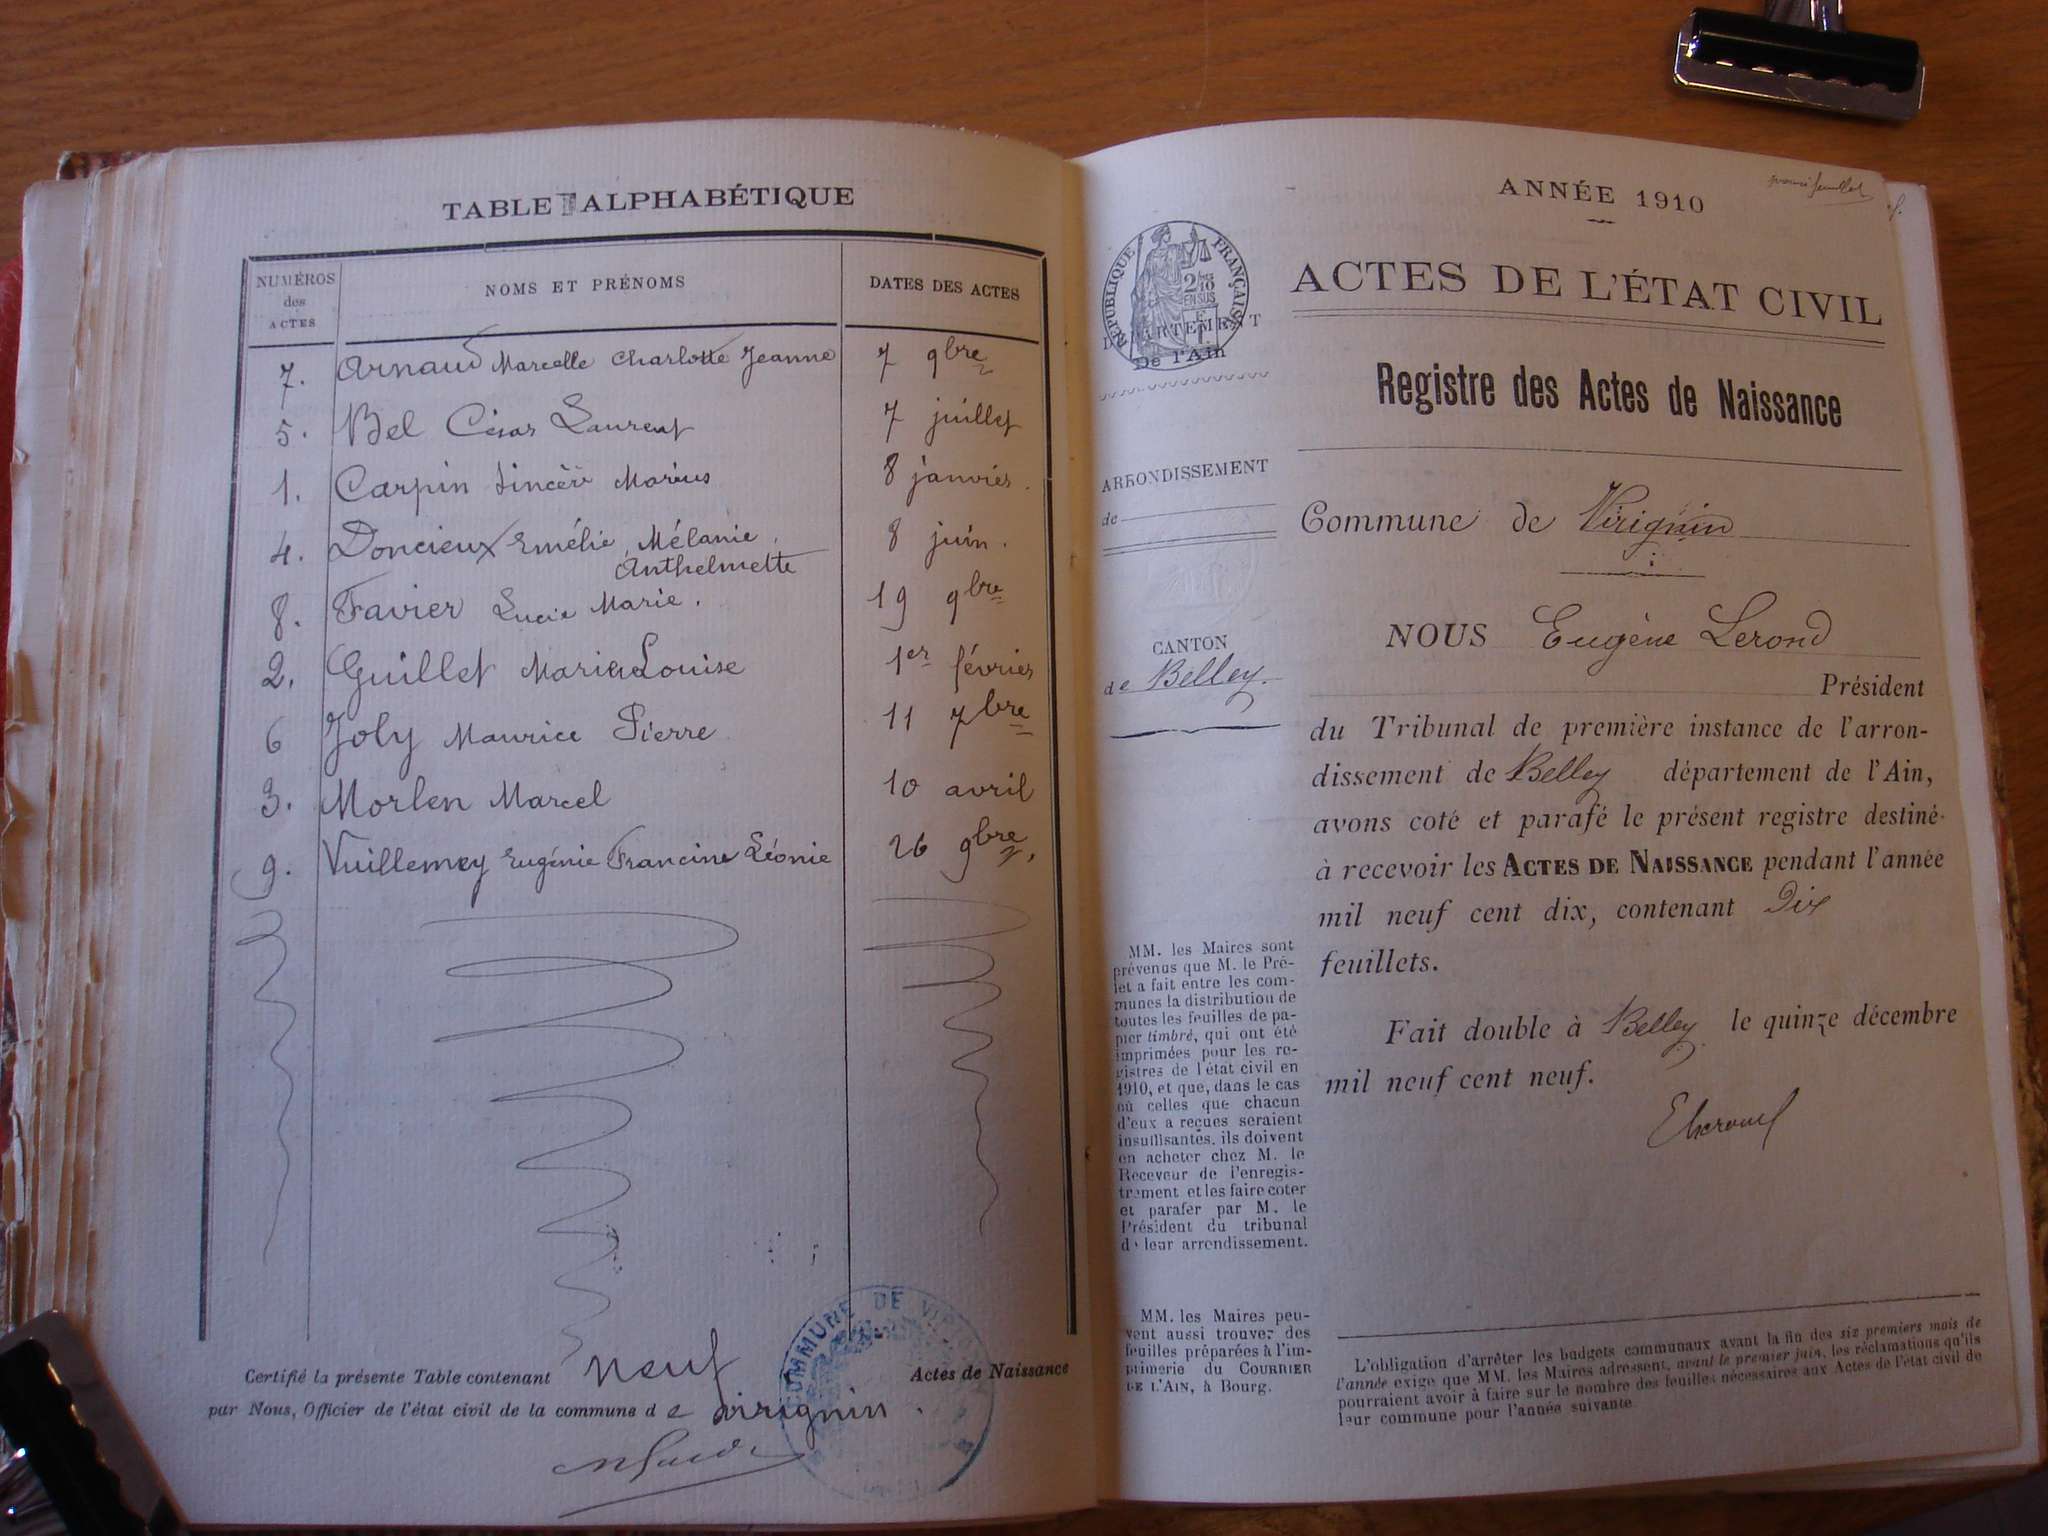 TABLE ALPHABÉTIQUE
NUMÉROS des ACTES
NOMS ET PRÉNOMS
DATES DES ACTES
7. Arnaud Marcelle Charlotte Jeanne 7 9bre
5. Bel César Laurent 7 juillet
1. Carpin Marius 8 janvier.
4. Doncieux Emélie, Mélanie, 8 juin.
Anthelmette
8. Favier Lucie Marie. 19 9bre
2. Guillet Maria Louise 1er février
6 Joly Maurice Pierre 11 7bre
3. Morlen Marcel 10 avril
9. Vuillemey Eugénie Francine Léonie 26 9bre,
Certifié la présente Table contenant Neuf Actes de Naissance
par Nous, Officier de l'état civil de la commune de Virignin.
COMMUNE DE VIRIGNIN
ANNÉE 1910
ACTES DE L'ÉTAT CIVIL
RÉPUBLIQUE FRANÇAISE
2/10
EN SUS
DÉPARTEMENT
De l'Ain
Registre des Actes de Naissance
ARRONDISSEMENT
de
Commune de Virignin
CANTON
de Belley.
NOUS Eugène Lerond
Président
du Tribunal de première instance de l'arron-
dissement de Belley département de l'Ain,
avons coté et parafé le présent registre destiné
à recevoir les ACTES DE NAISSANCE pendant l'année
mil neuf cent dix, contenant Dix
feuillets.
Fait double à Belley le quinze décembre
mil neuf cent neuf.
MM. les Maires sont
prévenus que M. le Pré-
fet a fait entre les com-
munes la distribution de
toutes les feuilles de pa-
pier timbré, qui ont été
imprimées pour les re-
gistres de l'état civil en
1910, et que, dans le cas
où celles que chacun
d'eux a reçues seraient
insuffisantes, ils doivent
en acheter chez M. le
Receveur de l'enregis-
trement et les faire coter
et parafer par M. le
Président du tribunal
de leur arrondissement.
MM. les Maires peu-
vent aussi trouver des
feuilles préparées à l'im-
primerie du COURRIER
DE L'AIN, à Bourg.
L'obligation d'arrêter les budgets communaux avant la fin des six premiers mois de
l'année exige que MM. les Maires adressent, avant le premier juin, les réclamations qu'ils
pourraient avoir à faire sur le nombre des feuilles nécessaires aux Actes de l'état civil de
leur commune pour l'année suivante.